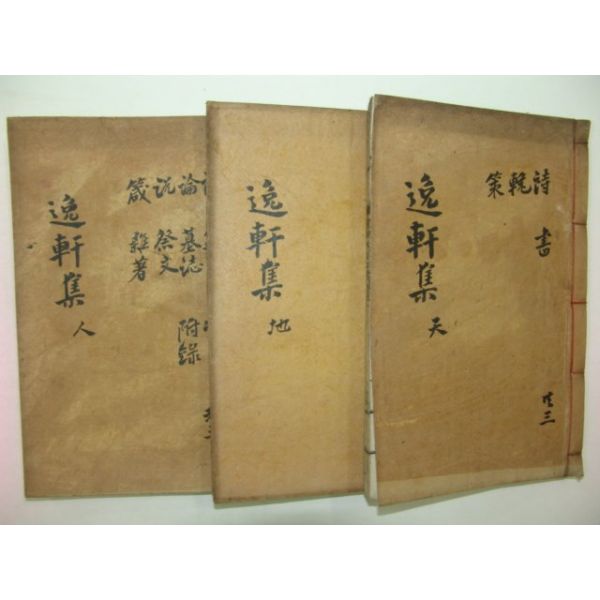 共三
詩 書
輓
策
逸軒集 天
逸軒集 地
論 墓誌 附錄
說 祭文
箴 雜著
逸軒集 人